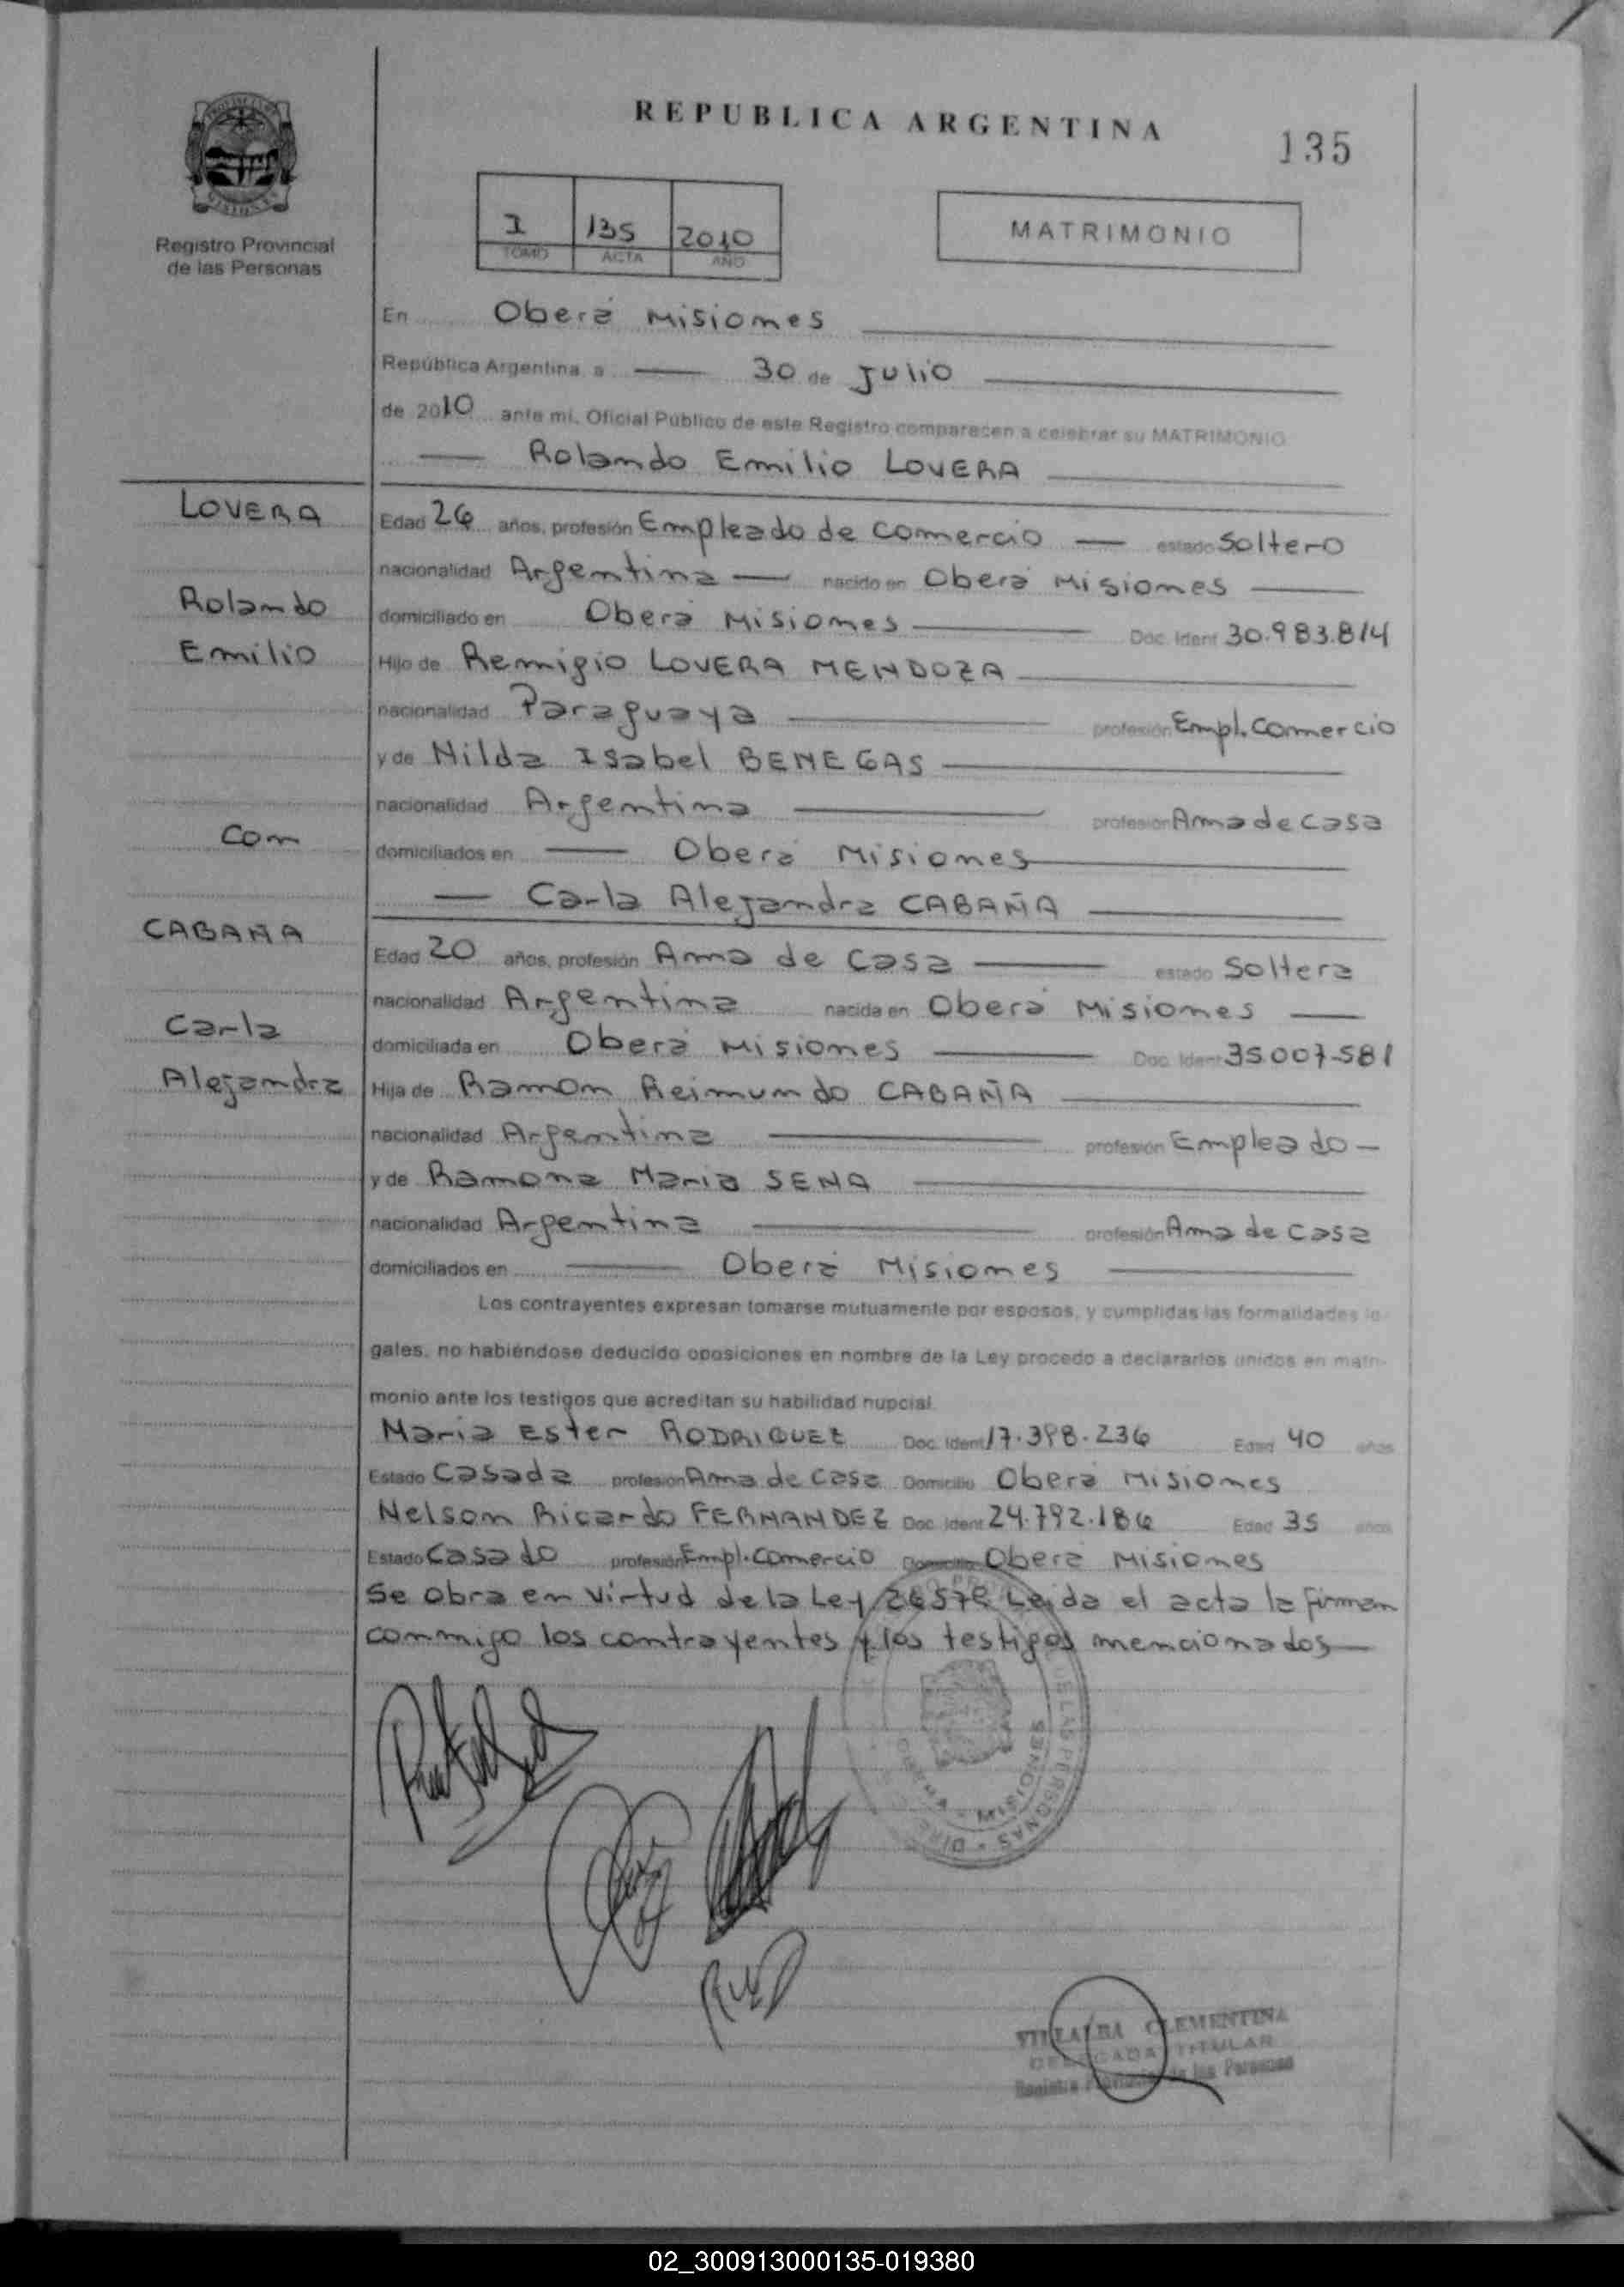 REPUBLICA ARGENTINA
135
Registro Provincial
de las Personas
I 135 2010
TOMO ACTA AÑO
MATRIMONIO
En Oberá Misiones
República Argentina, a 30 de Julio
de 2010 ante mi, Oficial Público de este Registro comparecen a celebrar su MATRIMONIO
Rolando Emilio LOVERA
LOVERA
Rolando
Emilio
Con
CABAÑA
Carla
Alejandra
Edad 26 años, profesión Empleado de comercio estado Soltero
nacionalidad Argentina nacido en Oberá Misiones
domiciliado en Oberá Misiones Doc. Ident 30.983.814
Hijo de Remigio LOVERA MENDOZA
nacionalidad Paraguaya profesión Empl. Comercio
y de Nilda Isabel BENEGAS
nacionalidad Argentina profesión Ama de casa
domiciliados en Oberá Misiones
Carla Alejandra CABAÑA
Edad 20 años, profesión Ama de casa estado Soltera
nacionalidad Argentina nacida en Oberá Misiones
domiciliada en Oberá Misiones Doc. Ident 35.007.581
Hija de Ramon Reimundo CABAÑA
nacionalidad Argentina profesión Empleado
y de Ramona Maria SENA
nacionalidad Argentina profesión Ama de casa
domiciliados en Oberá Misiones
Los contrayentes expresan tomarse mutuamente por esposos, y cumplidas las formalidades le-
gales, no habiéndose deducido oposiciones en nombre de la Ley procedo a declararlos unidos en matri-
monio ante los testigos que acreditan su habilidad nupcial.
Maria Ester RODRIGUEZ Doc. Ident 17.398.236 Edad 40 años
Estado Casada profesión Ama de casa Domicilio Oberá Misiones
Nelson Ricardo FERNANDEZ Doc. Ident 24.792.186 Edad 35 años
Estado Casado profesión Empl. Comercio Domicilio Oberá Misiones
Se obra en virtud de la Ley 26578 Leida el acta la firman
conmigo los contrayentes y los testigos mencionados
DE LAS PERSONAS
MISIONES
VILLALBA CLEMENTINA
DELEGADA TITULAR
Registro Provincial de las Personas
02_300913000135-019380